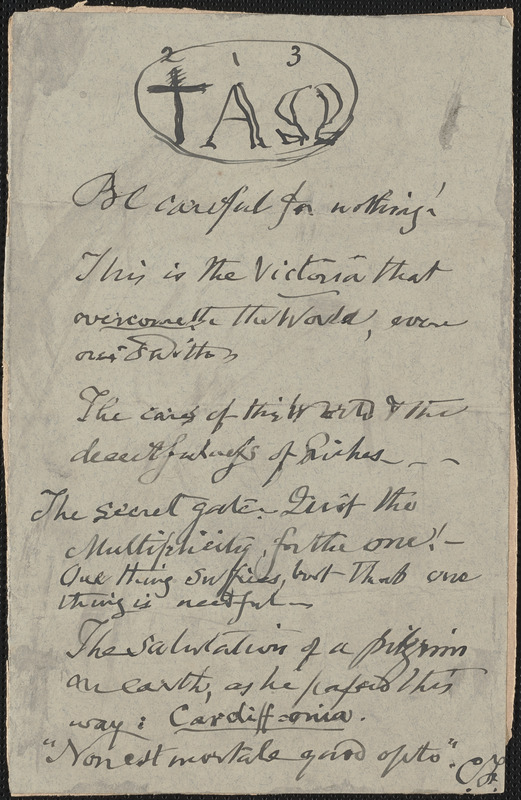 2 1 3
† A Ω
Be careful for nothing!
This is the Victoria that
overcometh the World, even
our Faith
The cares of this World & the
deceitfulness of Riches - -
The secret gate - Quit the
Multiplicity, for the one! -
One thing suffices, but that one
thing is needful -
The salutation of a pilgrim
on earth, as he passed this
way: Cardiff-onia.
"Non est mortale quod opto".